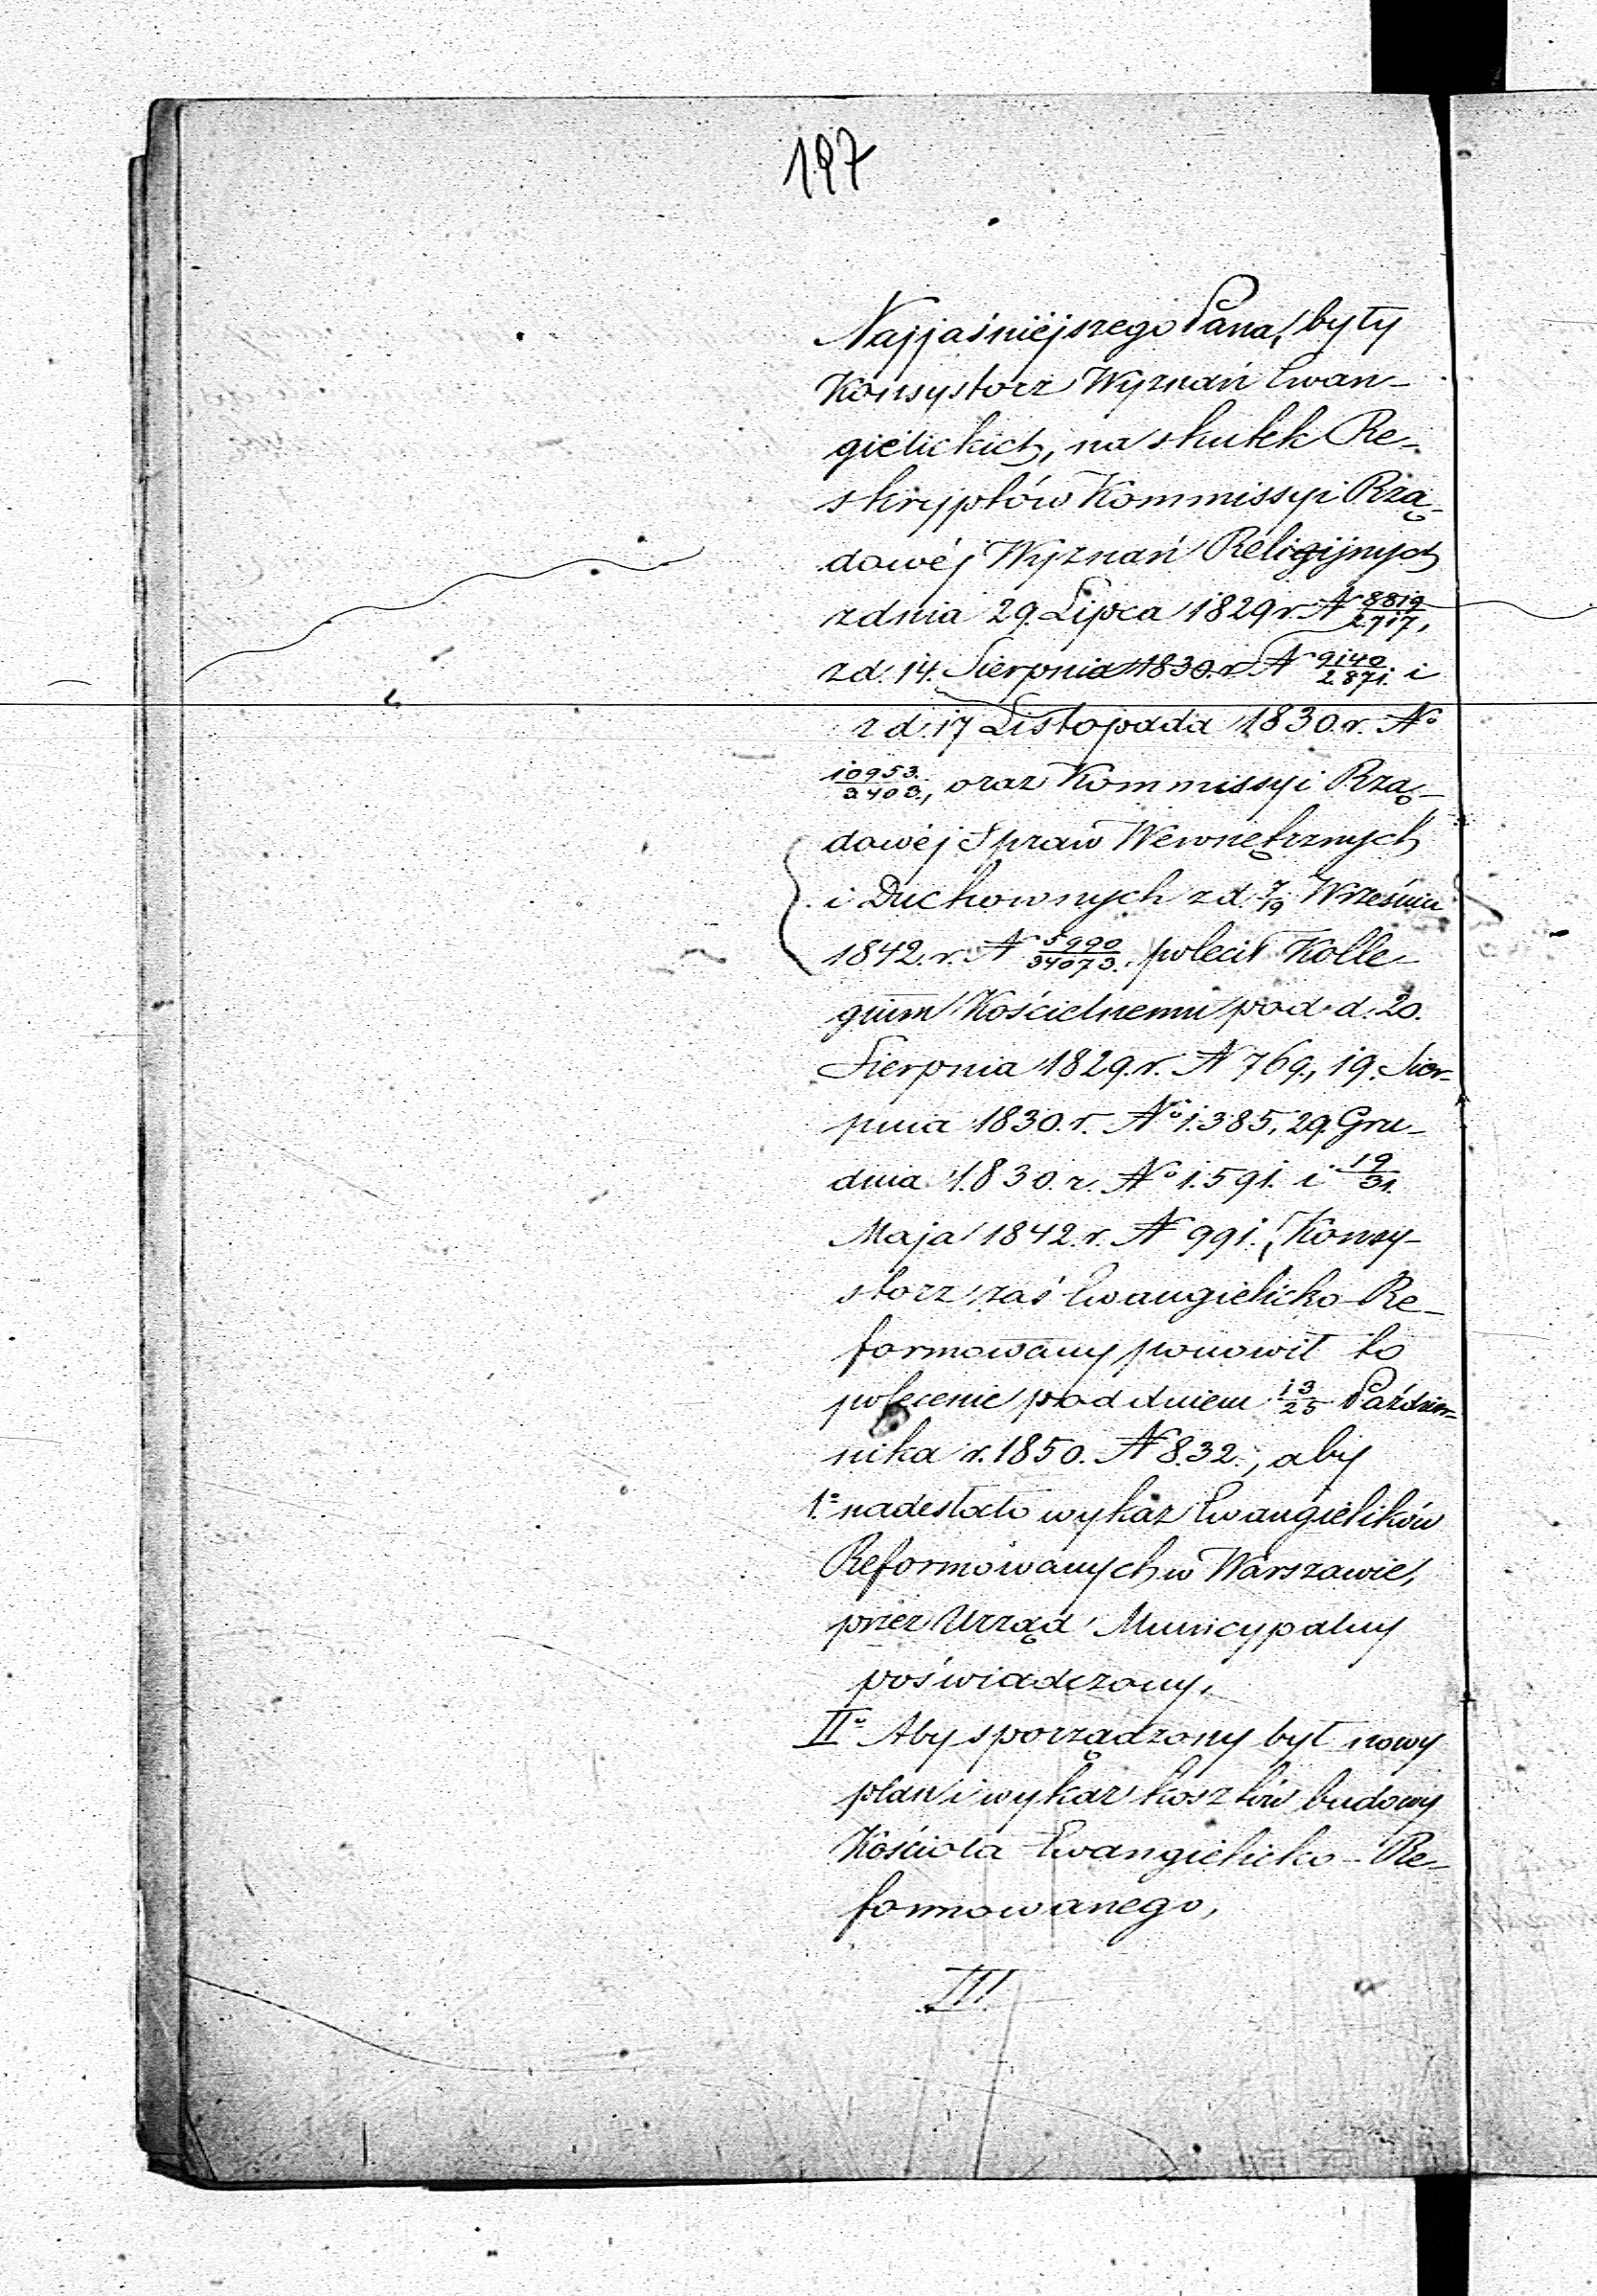 197
Najjaśniéjszego Pana, były
Konsystorz Wyznań Ewan-
gielickich, na skutek Re-
skryptów Kommissyi Rzą-
dowéj Wyznań Religijnych
z dnia 29. Lipca 1829 r. N 8819/2717,
z d. 14. Sierpnia 1830. r. N 9140/2871. i
z d. 17 Listopada 1830. r. No
10953./3403., oraz Kommissyi Rzą-
dowéj Spraw Wewnętrznych
i Duchownych z d. 7/19 Września
1842. r. N 5990/34073. polecił Kolle-
gium Kościelnemu pod d. 20.
Sierpnia 1829. r. N 769., 19. Sier-
pnia 1830. r. No 1.385, 29. Gru-
dnia 1.830. r. No 1.591. i 19/31.
Maja 1842. r. N 991., Konsy-
storz zaś Ewangielicko-Re-
formowany ponowił to
polecenie pod dniem 13/25 Paździer-
nika r. 1850. N 832., aby
1o nadesłało wykaz Ewangielików
Reformowanych w Warszawie,
przez Urząd Municypalny
poświadczony,
IIo Aby sporządzony był nowy
plan i wykaz kosztów budowy
Kościoła Ewangielicko-Re-
formowanego,
III